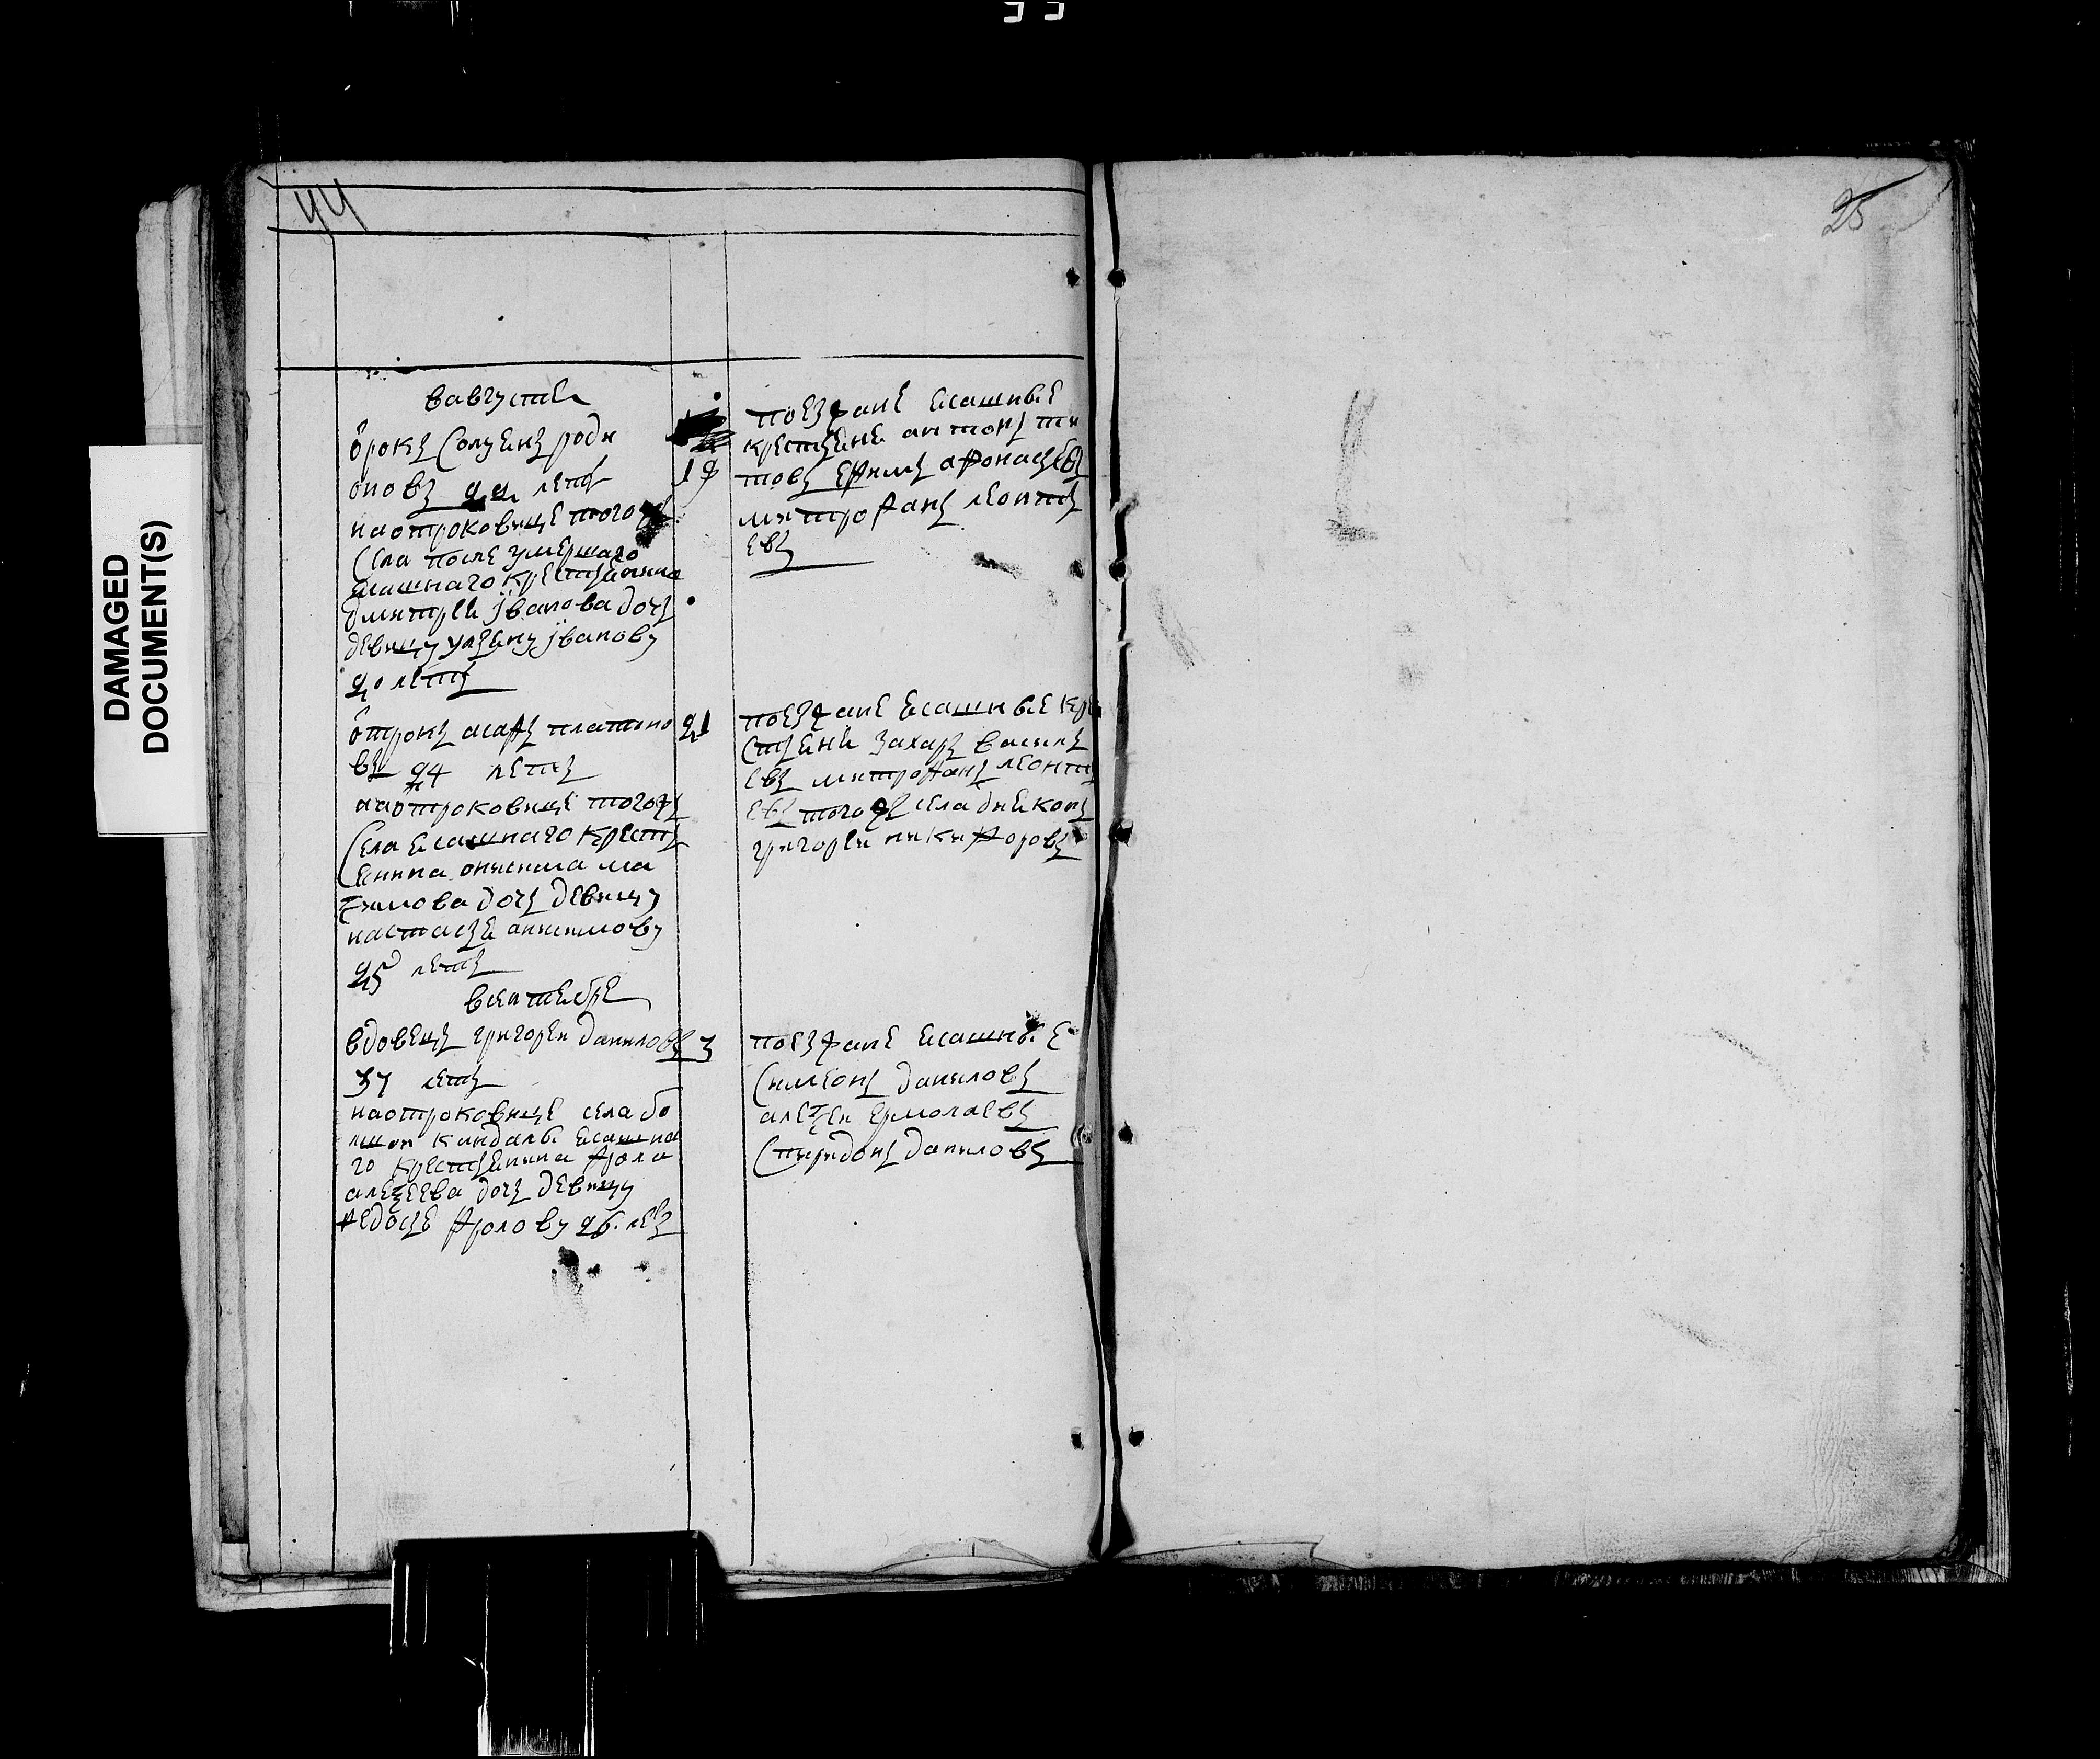 44
25
DAMAGED
DOCUMENT(S)
в августе
отрокъ
оновъ 22 летъ
на отроковице того жъ
села после умершаго
ясашнаго крестьянина
дмитрея иванова дочь
девицу ульяну иванову
20 летъ
19
поезжане ясашные
крестьяне антонъ ти
товъ ефимъ афонасьевъ
митрофанъ леонть
евъ
отрокъ асафъ платоно
въ 24 летъ
на отроковице того жъ
села ясашнаго кресть
янина онисима ма
ѯимова дочь девицу
настасью анисимову
25 летъ
21
поезжане ясашные кре
стьяне захаръ василь
евъ митрофанъ леонть
евъ того жъ села дьяконъ
григореи никифоровъ
в сентебре
вдовецъ григореи даниловъ
37 летъ
на отроковице села бо
лшои кандалы ясашна
го крестьянина фрола
алеѯеева дочь девицу
федосье фролову 26 летъ
3
поезжане ясашные
симеонъ даниловъ
алеѯеи ермолаевъ
спиридонъ даниловъ